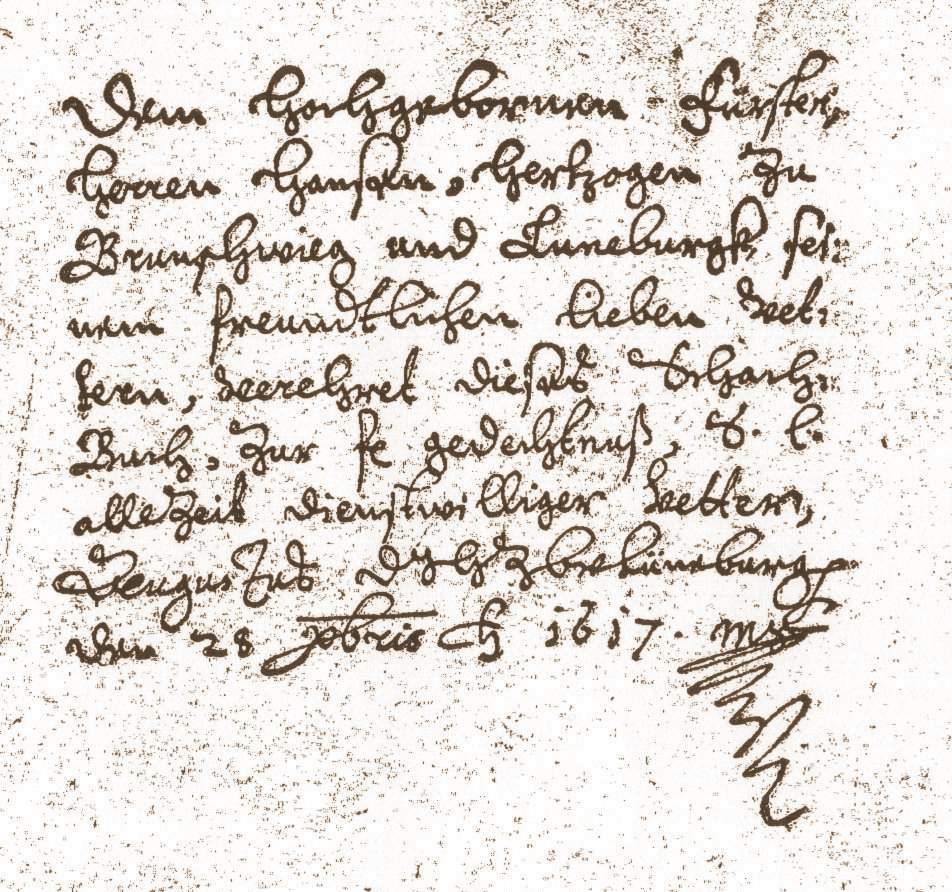 Dem Hochgebornnen Fürsten,
Herren Hansen, Hertzogen zu
Braunschwieg und Luneburgk, sei:
nem freundtlichen lieben Vet:
tern, verehret dieses Schach:
Buch, zur gedechtnuß, S. L.
allezeit dienstwilliger Vetter,
Augustus D J H Z B v Lüneburg
den 28 xbris 1617. mp